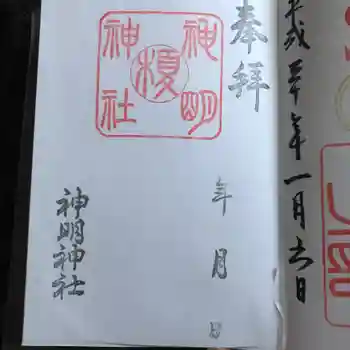 平成三十年一月六日
奉拝
年月日
神明
榎
神社
神明神社